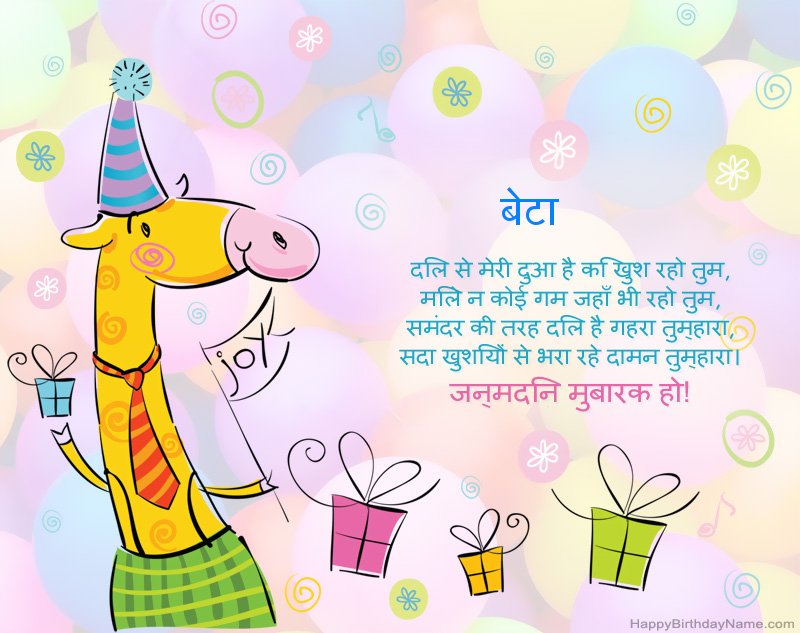 बेटा
दिल से मेरी दुआ है कि खुश रहो तुम,
मिले न कोई गम जहाँ भी रहो तुम,
समंदर की तरह दिल है गहरा तुम्हारा,
सदा खुशियों से भरा रहे दामन तुम्हारा।
जन्मदिन मुबारक हो!
joy
HappyBirthdayName.com